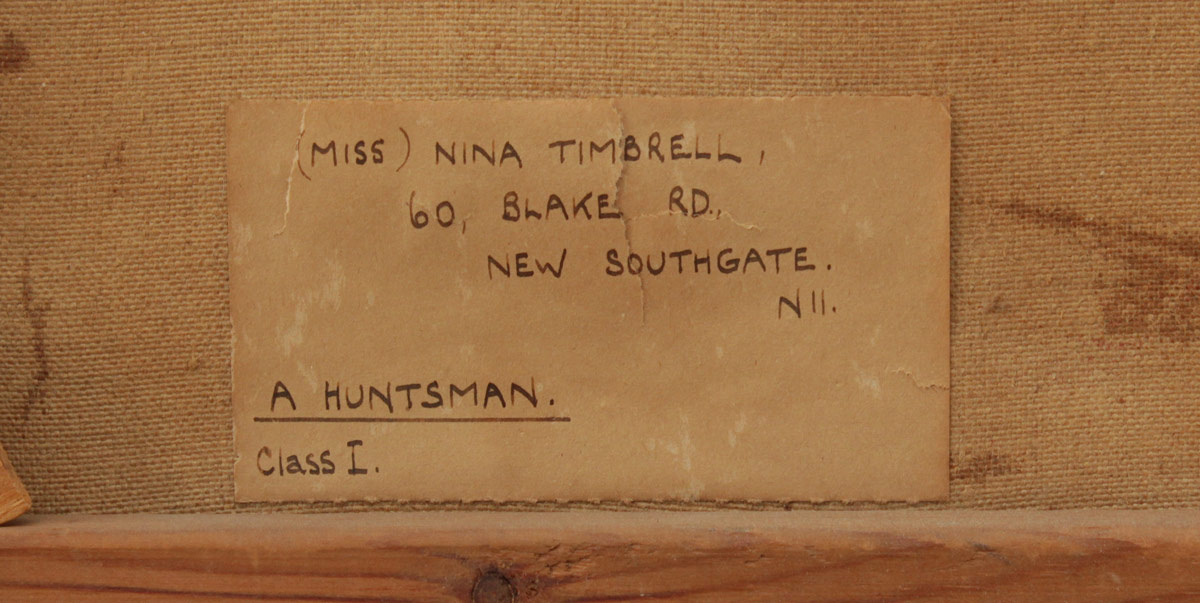 (MISS) NINA TIMBRELL,
60, BLAKE RD.,
NEW SOUTHGATE.
N11.
A HUNTSMAN.
Class I.